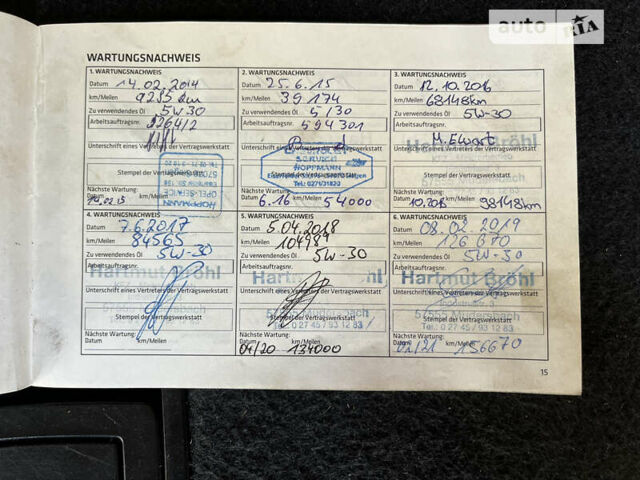 auto RIA
WARTUNGSNACHWEIS
1. WARTUNGSNACHWEIS
Datum 14.02.2014
km/Meilen 9285 km
Zu verwendendes Öl 5W30
Arbeitsauftragsnr.
Unterschrift eines Vertreters der Vertragswerkstatt
Stempel der Vertragswerkstatt
HOFFMANN
OPEL-SERVICE
Nächste Wartung:
Datum km/Meilen
2. WARTUNGSNACHWEIS
Datum 25.6.15
km/Meilen 39174
Zu verwendendes Öl 5/30
Arbeitsauftragsnr. 594301
Unterschrift eines Vertreters der Vertragswerkstatt
SERVICE
HOFFMANN
Stempel der Vertragswerkstatt
Tel.: 0271/31820
Nächste Wartung:
Datum 6.16 km/Meilen 54000
3. WARTUNGSNACHWEIS
Datum 12.10.2016
km/Meilen 68148km
Zu verwendendes Öl 5W-30
Arbeitsauftragsnr.
M. Ewert
Unterschrift eines Vertreters der Vertragswerkstatt
Stempel der Vertragswerkstatt
Nächste Wartung:
Datum km/Meilen 98148km
4. WARTUNGSNACHWEIS
Datum 7.6.2017
km/Meilen 84565
Zu verwendendes Öl 5W-30
Arbeitsauftragsnr.
Hartmut Bröhl
Unterschrift eines Vertreters der Vertragswerkstatt
Stempel der Vertragswerkstatt
Nächste Wartung:
Datum km/Meilen
5. WARTUNGSNACHWEIS
Datum 5.04.2018
km/Meilen
Zu verwendendes Öl 5W-30
Arbeitsauftragsnr.
Hartmut Bröhl
Unterschrift eines Vertreters der Vertragswerkstatt
Stempel der Vertragswerkstatt
Tel.: 0 27 45 / 93 12 83
Nächste Wartung:
Datum 04/20 km/Meilen 134000
6. WARTUNGSNACHWEIS
Datum 08.02.2019
km/Meilen 126670
Zu verwendendes Öl 5W-30
Arbeitsauftragsnr.
Hartmut Bröhl
Unterschrift eines Vertreters der Vertragswerkstatt
Stempel der Vertragswerkstatt
Tel.: 0 27 45 / 93 12 83
Nächste Wartung:
Datum 02/21 km/Meilen 156670
15